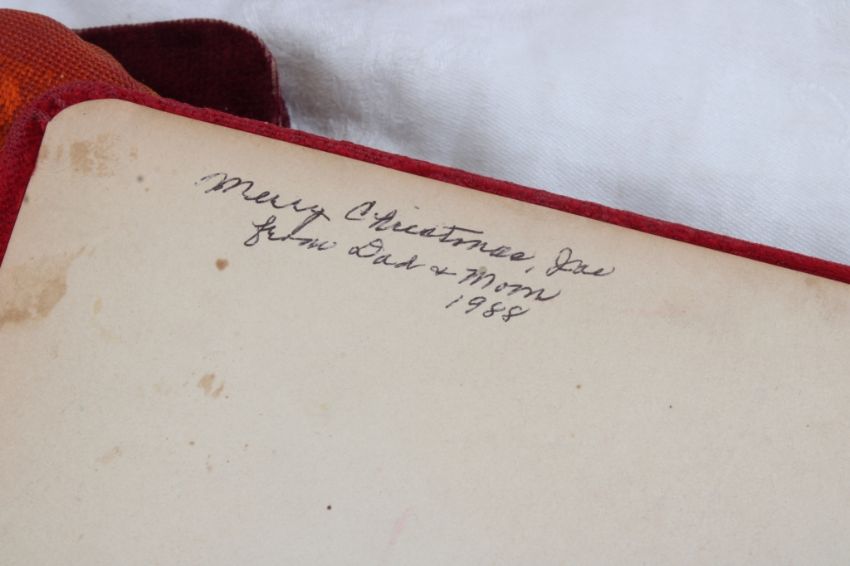 Merry Christmas, Joe
from Dad & Mom
1988